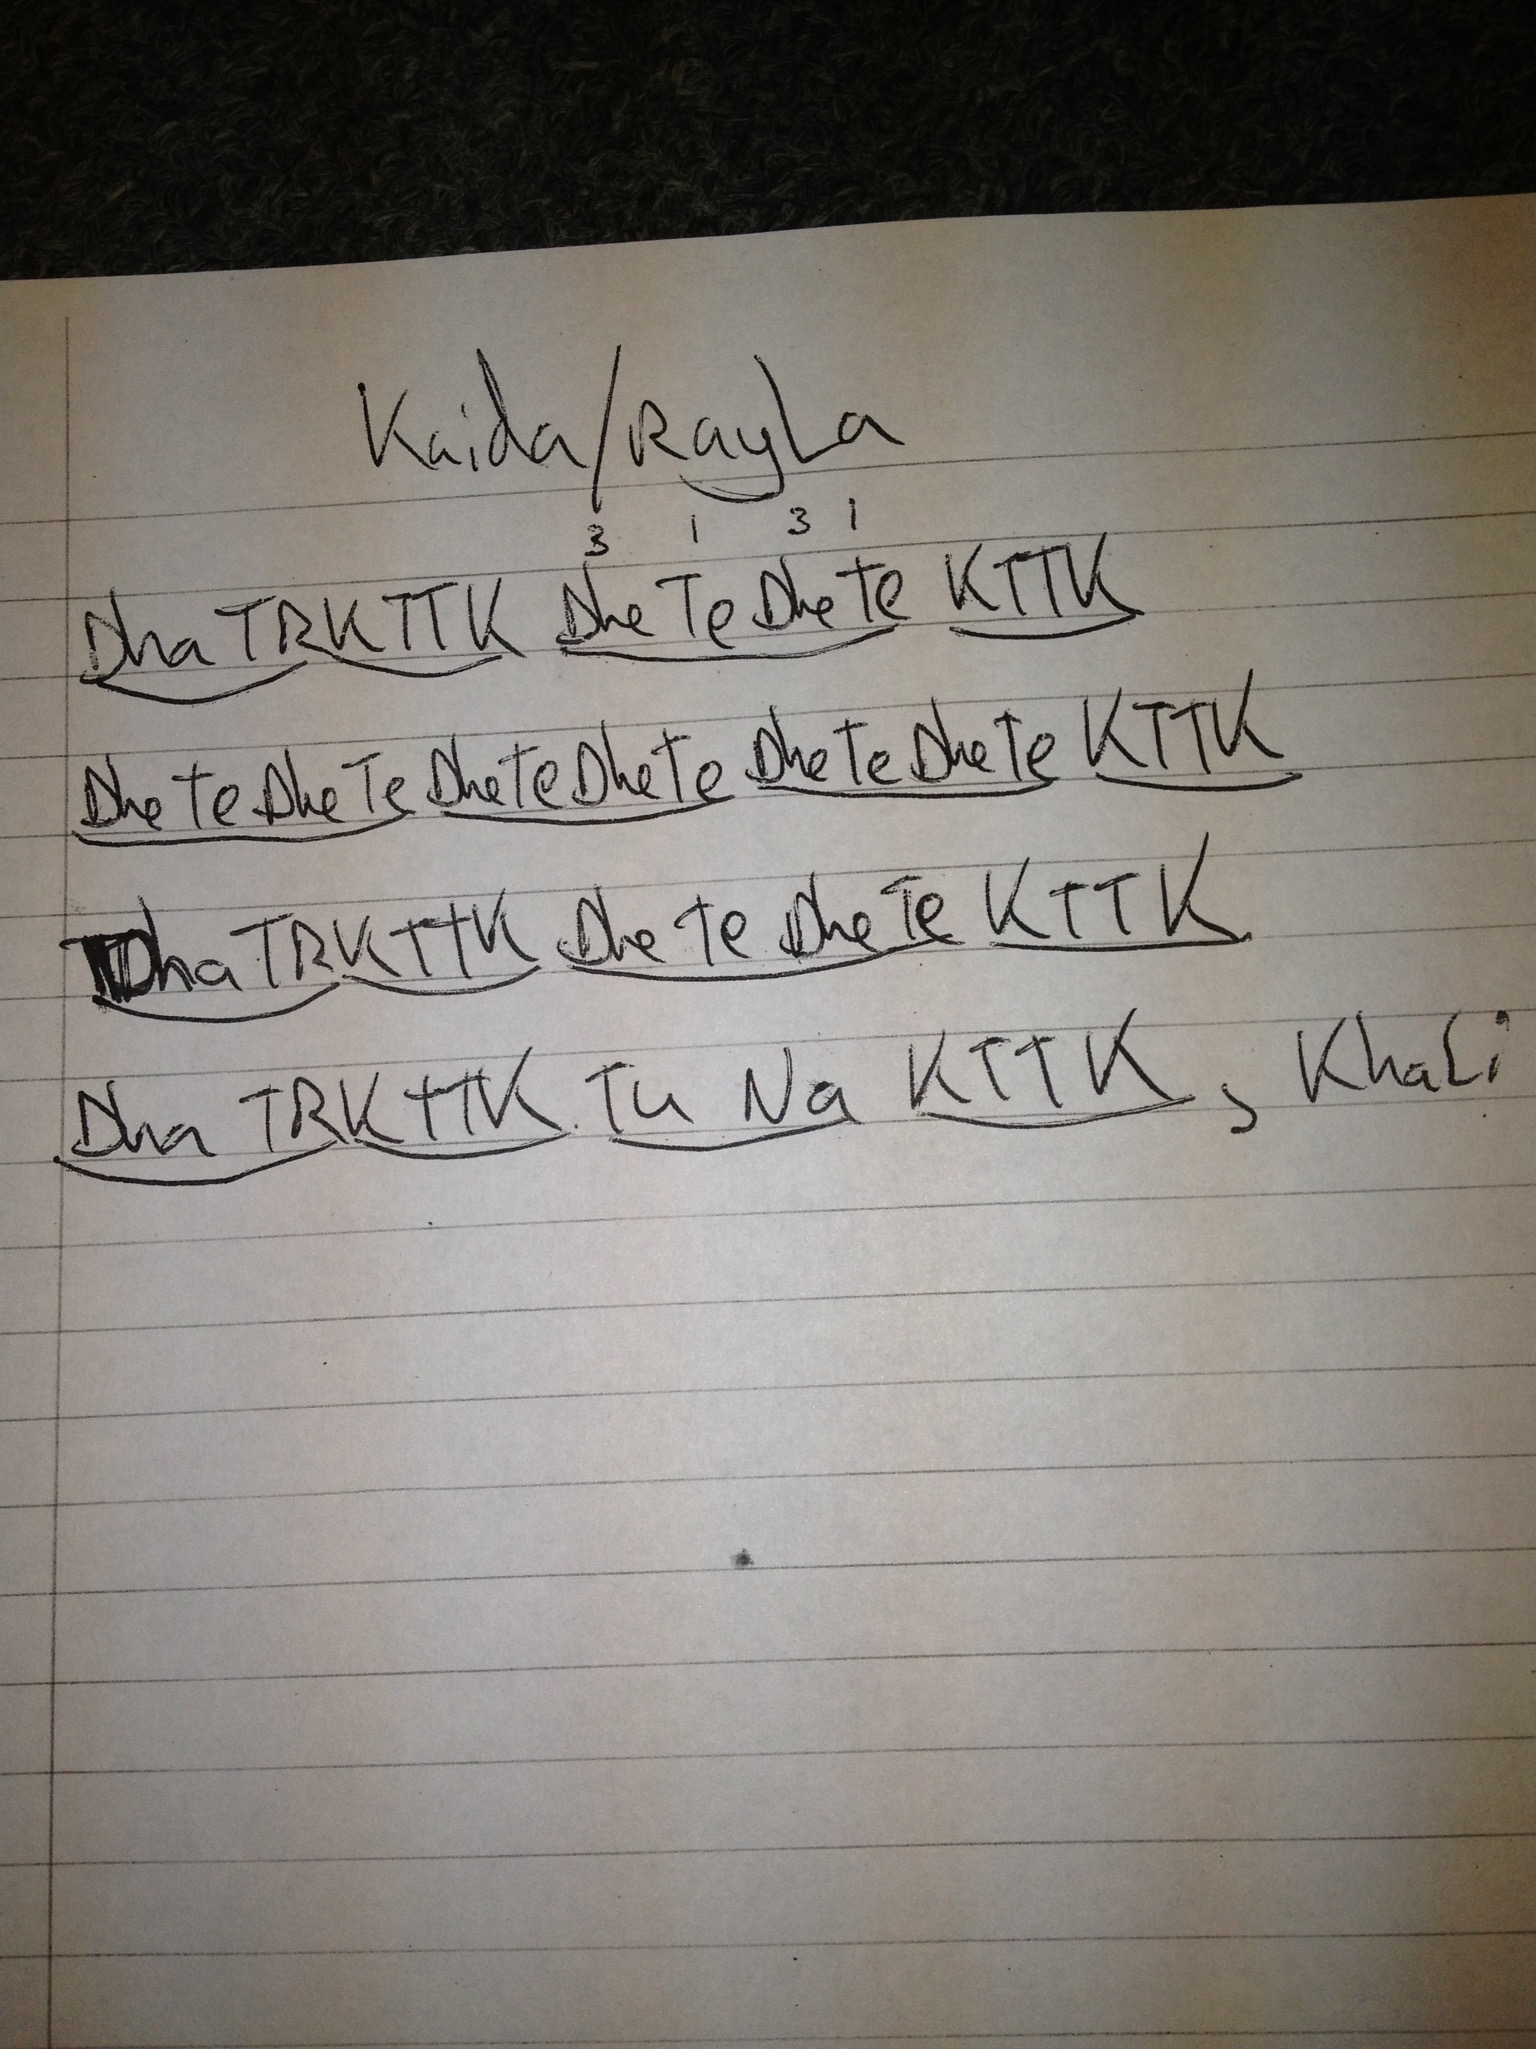 Kaida/RayLa
3 1 3 1
Dha TRKTTK Dhe Te Dhe Te KTTK
Dhe Te Dhe Te Dhe Te Dhe Te Dhe Te Dhe Te KTTK
Dha TRKTTK Dhe Te Dhe Te KTTK
Dha TRKTTK Tu Na KTTK, KhaLi